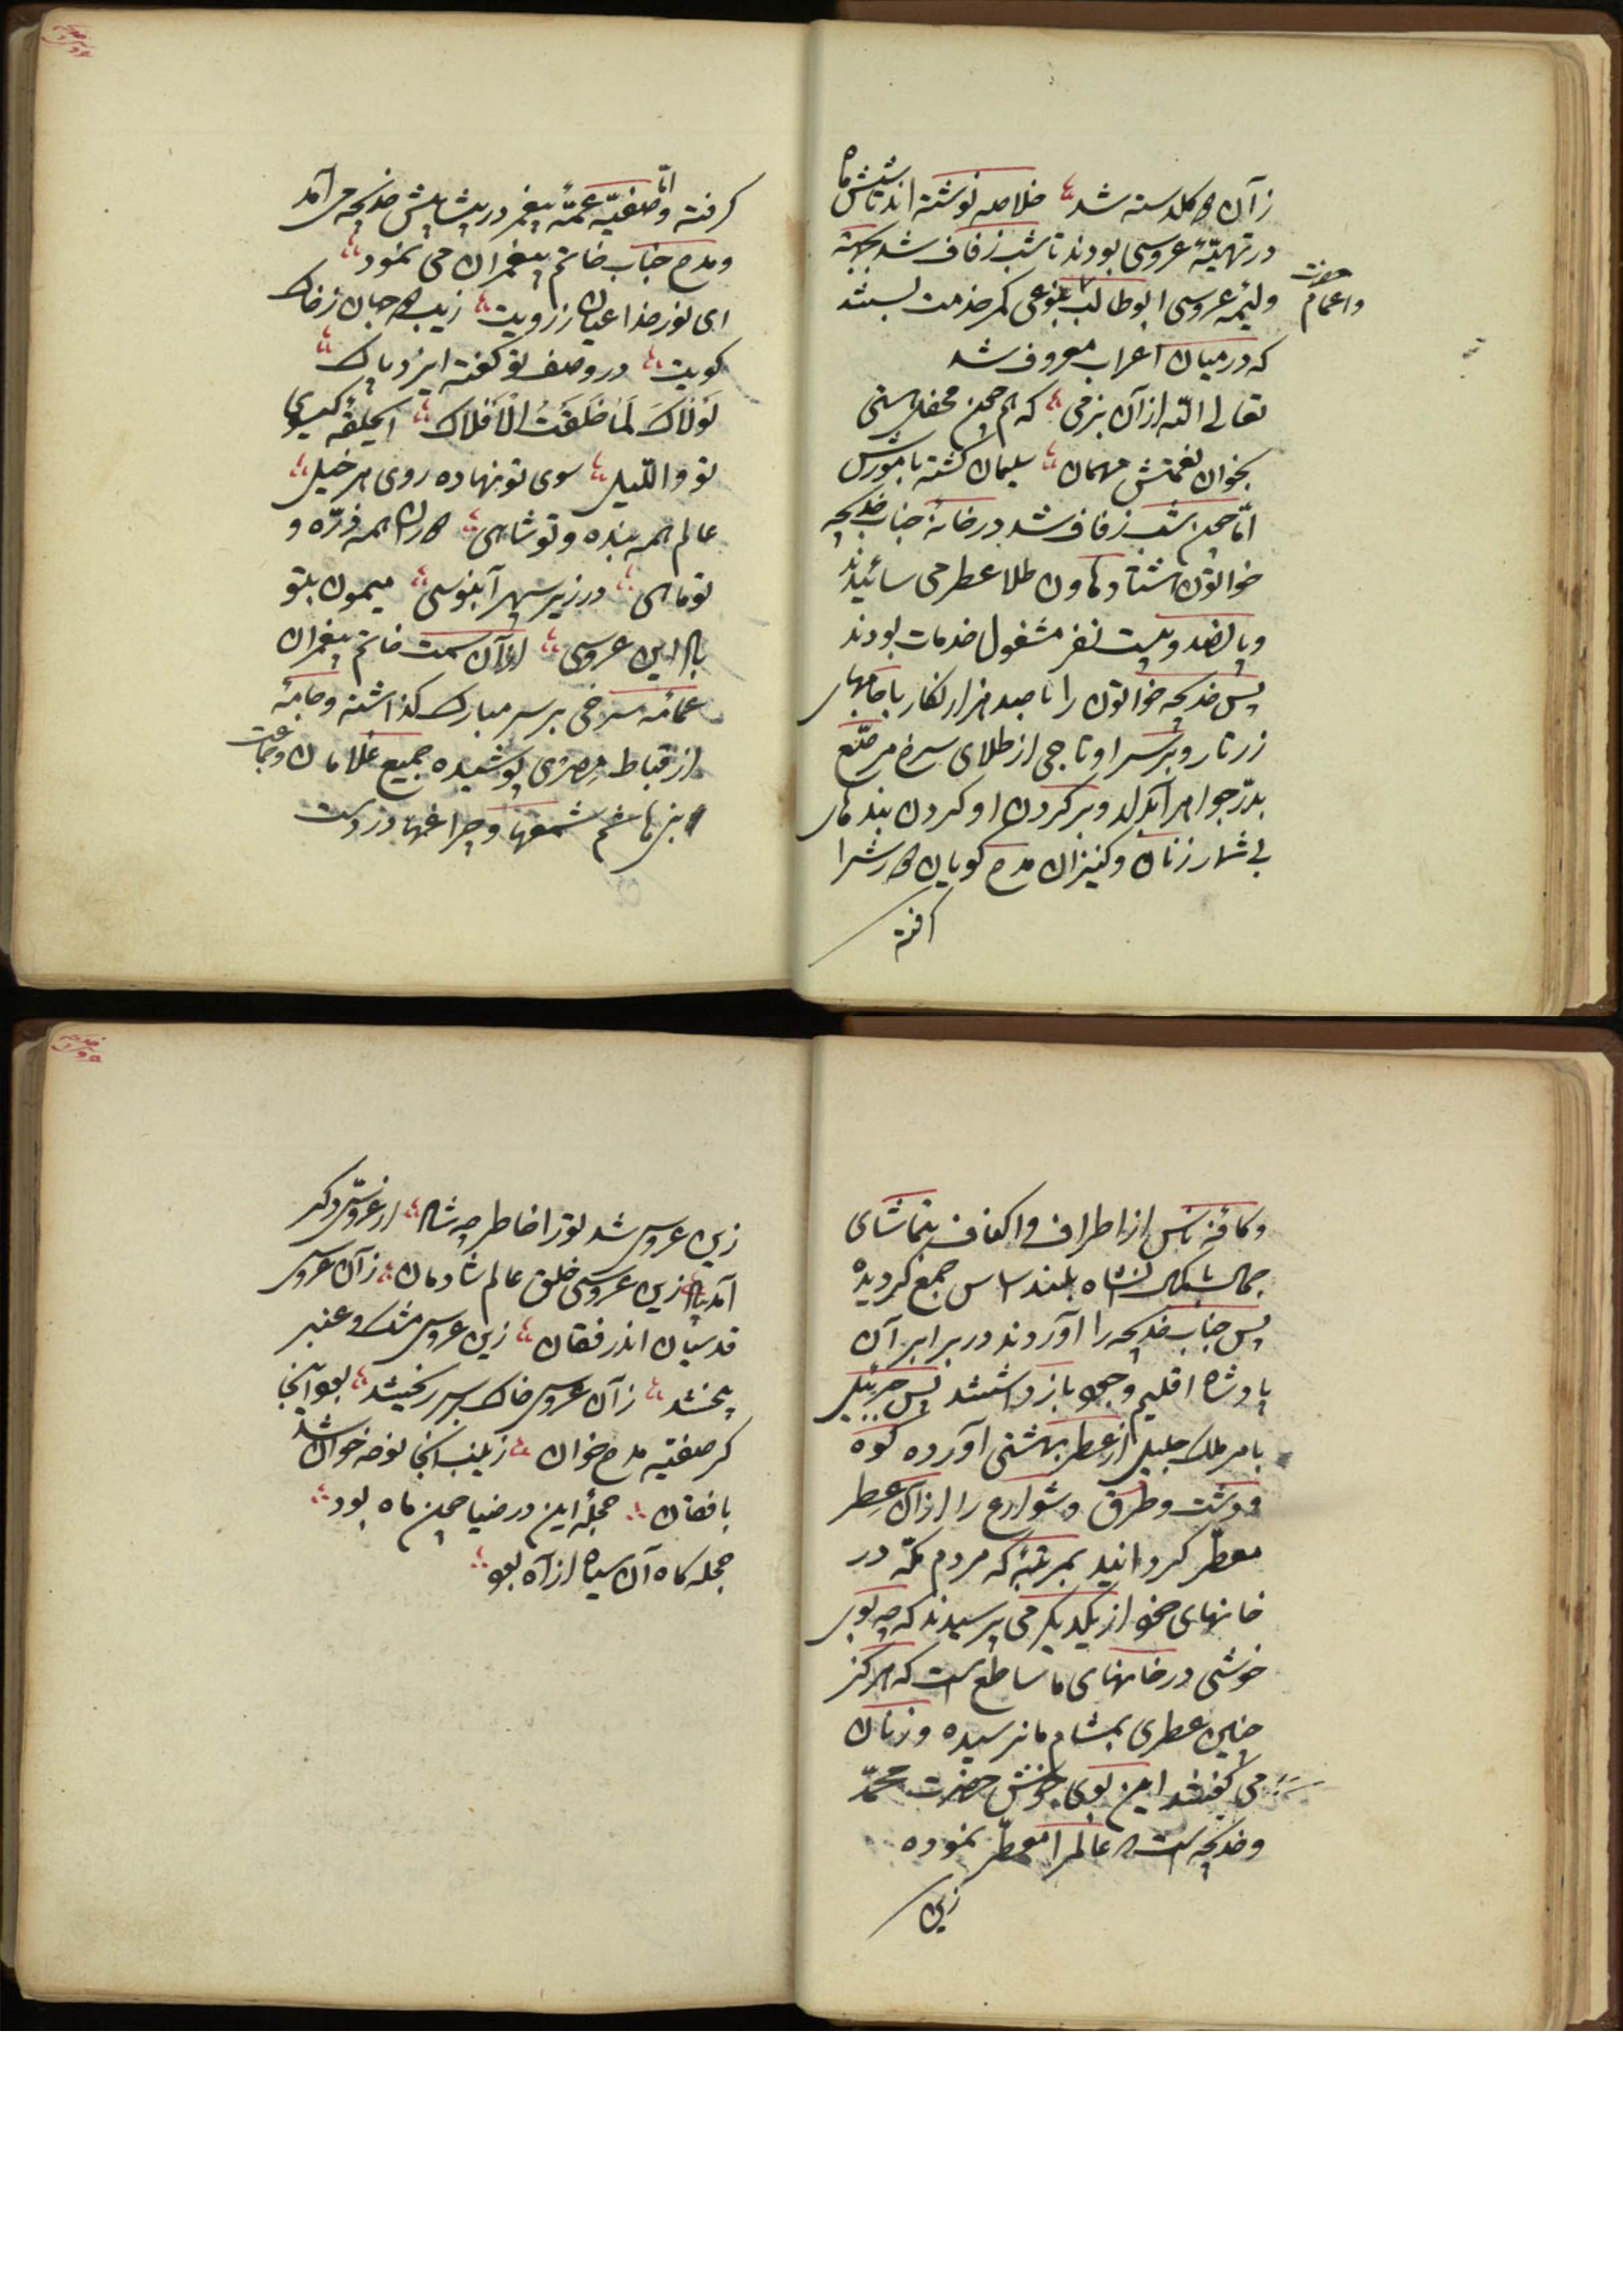 ز آن گلدسته شد خلاصه نوشته اند تا شش ماه
در تهیّهٔ عروسی بودند تا شب زفاف شد بجهة
ولیمهٔ عروسی ابوطالب بنوعی کمر خدمت بستند
واعمام حضرت
که در میان اعراب معروف شد
تعالی اللّه از آن بزمی که هم چون محفل هستی
بخوان نعمتش مهمان سلیمان گشته با مورش
امّا چون شب زفاف شد در خانهٔ جناب خدیجه
خواتون هشتاد هاون طلا عطر می سائیدند
و پانصد و بیست نفر مشغول خدمات بودند
پس خدیجه خواتون را با صد هزار نگار با جامهای
زرتار و بر سر او تاجی از طلای سرخ مرصّع
بدرّ جواهر آبدار و بر گردن او گردن بندهای
بی شمار زنان و کنیزان مدح گویان دورش را
گرفته
گرفته و امّا صفیّه عمّهٔ پیغمبر در پیشاپیش خدیجه می آمد
و مدح جناب خاتم پیغمبران می نمود
ای نور خدا عیان ز رویت زیب دو جهان ز خاک
کویت در وصف تو گفته ایزد پاک
لَوْلاکَ لَمٰا خَلَقْتُ الْأَفْلاک ایحلقهٔ گیسوی
تو واللّیل سوی تو نهاده روی هر خیل
عالم همه بنده و تو شاهی کاران همه ذرّه و
تو ماهی در زیر سپهر آبنوسی میمون بتو
بادا این عروسی از آن سمت خاتم پیغمبران
عمّامهٔ سرخی بر سر مبارک گذاشته و جامهٔ
از قباط مصری پوشیده جمیع غلامان و جماعت
بنی هاشم شمعها و چراغها در دست
و کافّهٔ ناس از اطراف و اکناف بتماشای
جمال باکمال آنشاه بلند اساس جمع گردیده
پس جناب خدیجه را آوردند در برابر آن
پادشاه اقلیم وجود بازداشتند پس جبرئیل
بامر ملک جلیل از عطر بهشتی آورده کوه
و دشت و طرق و شوارع را از آن عطر
معطّر گردانید بمرتبهٔ که مردم مکّه در
خانهای خود از یکدیگر می پرسیدند که چه بوی
خوشی در خانهای ما ساطع است که هرگز
چنین عطری بمشام ما نرسیده و زنان
می گفتند این بوی خوش حضرت محمّد
و خدیجه است که عالم را معطّر نموده
زین
زین عروسی شد تو را خاطر چه شاد از عروسیّ دگر
آمد یاد زین عروسی خلق عالم شادمان ز آن عروسی
قدسیان اندر فغان زین عروسی مشک و عنبر
پختند ز آن عروسی خاک بر سر ریختند بود آنجا
گر صفیّه مدح خوان زینب اینجا نوحه خوان شد
با فغان حجلهٔ این در ضیا چون ماه بود
حجله گاه آن سیاه از آه بود